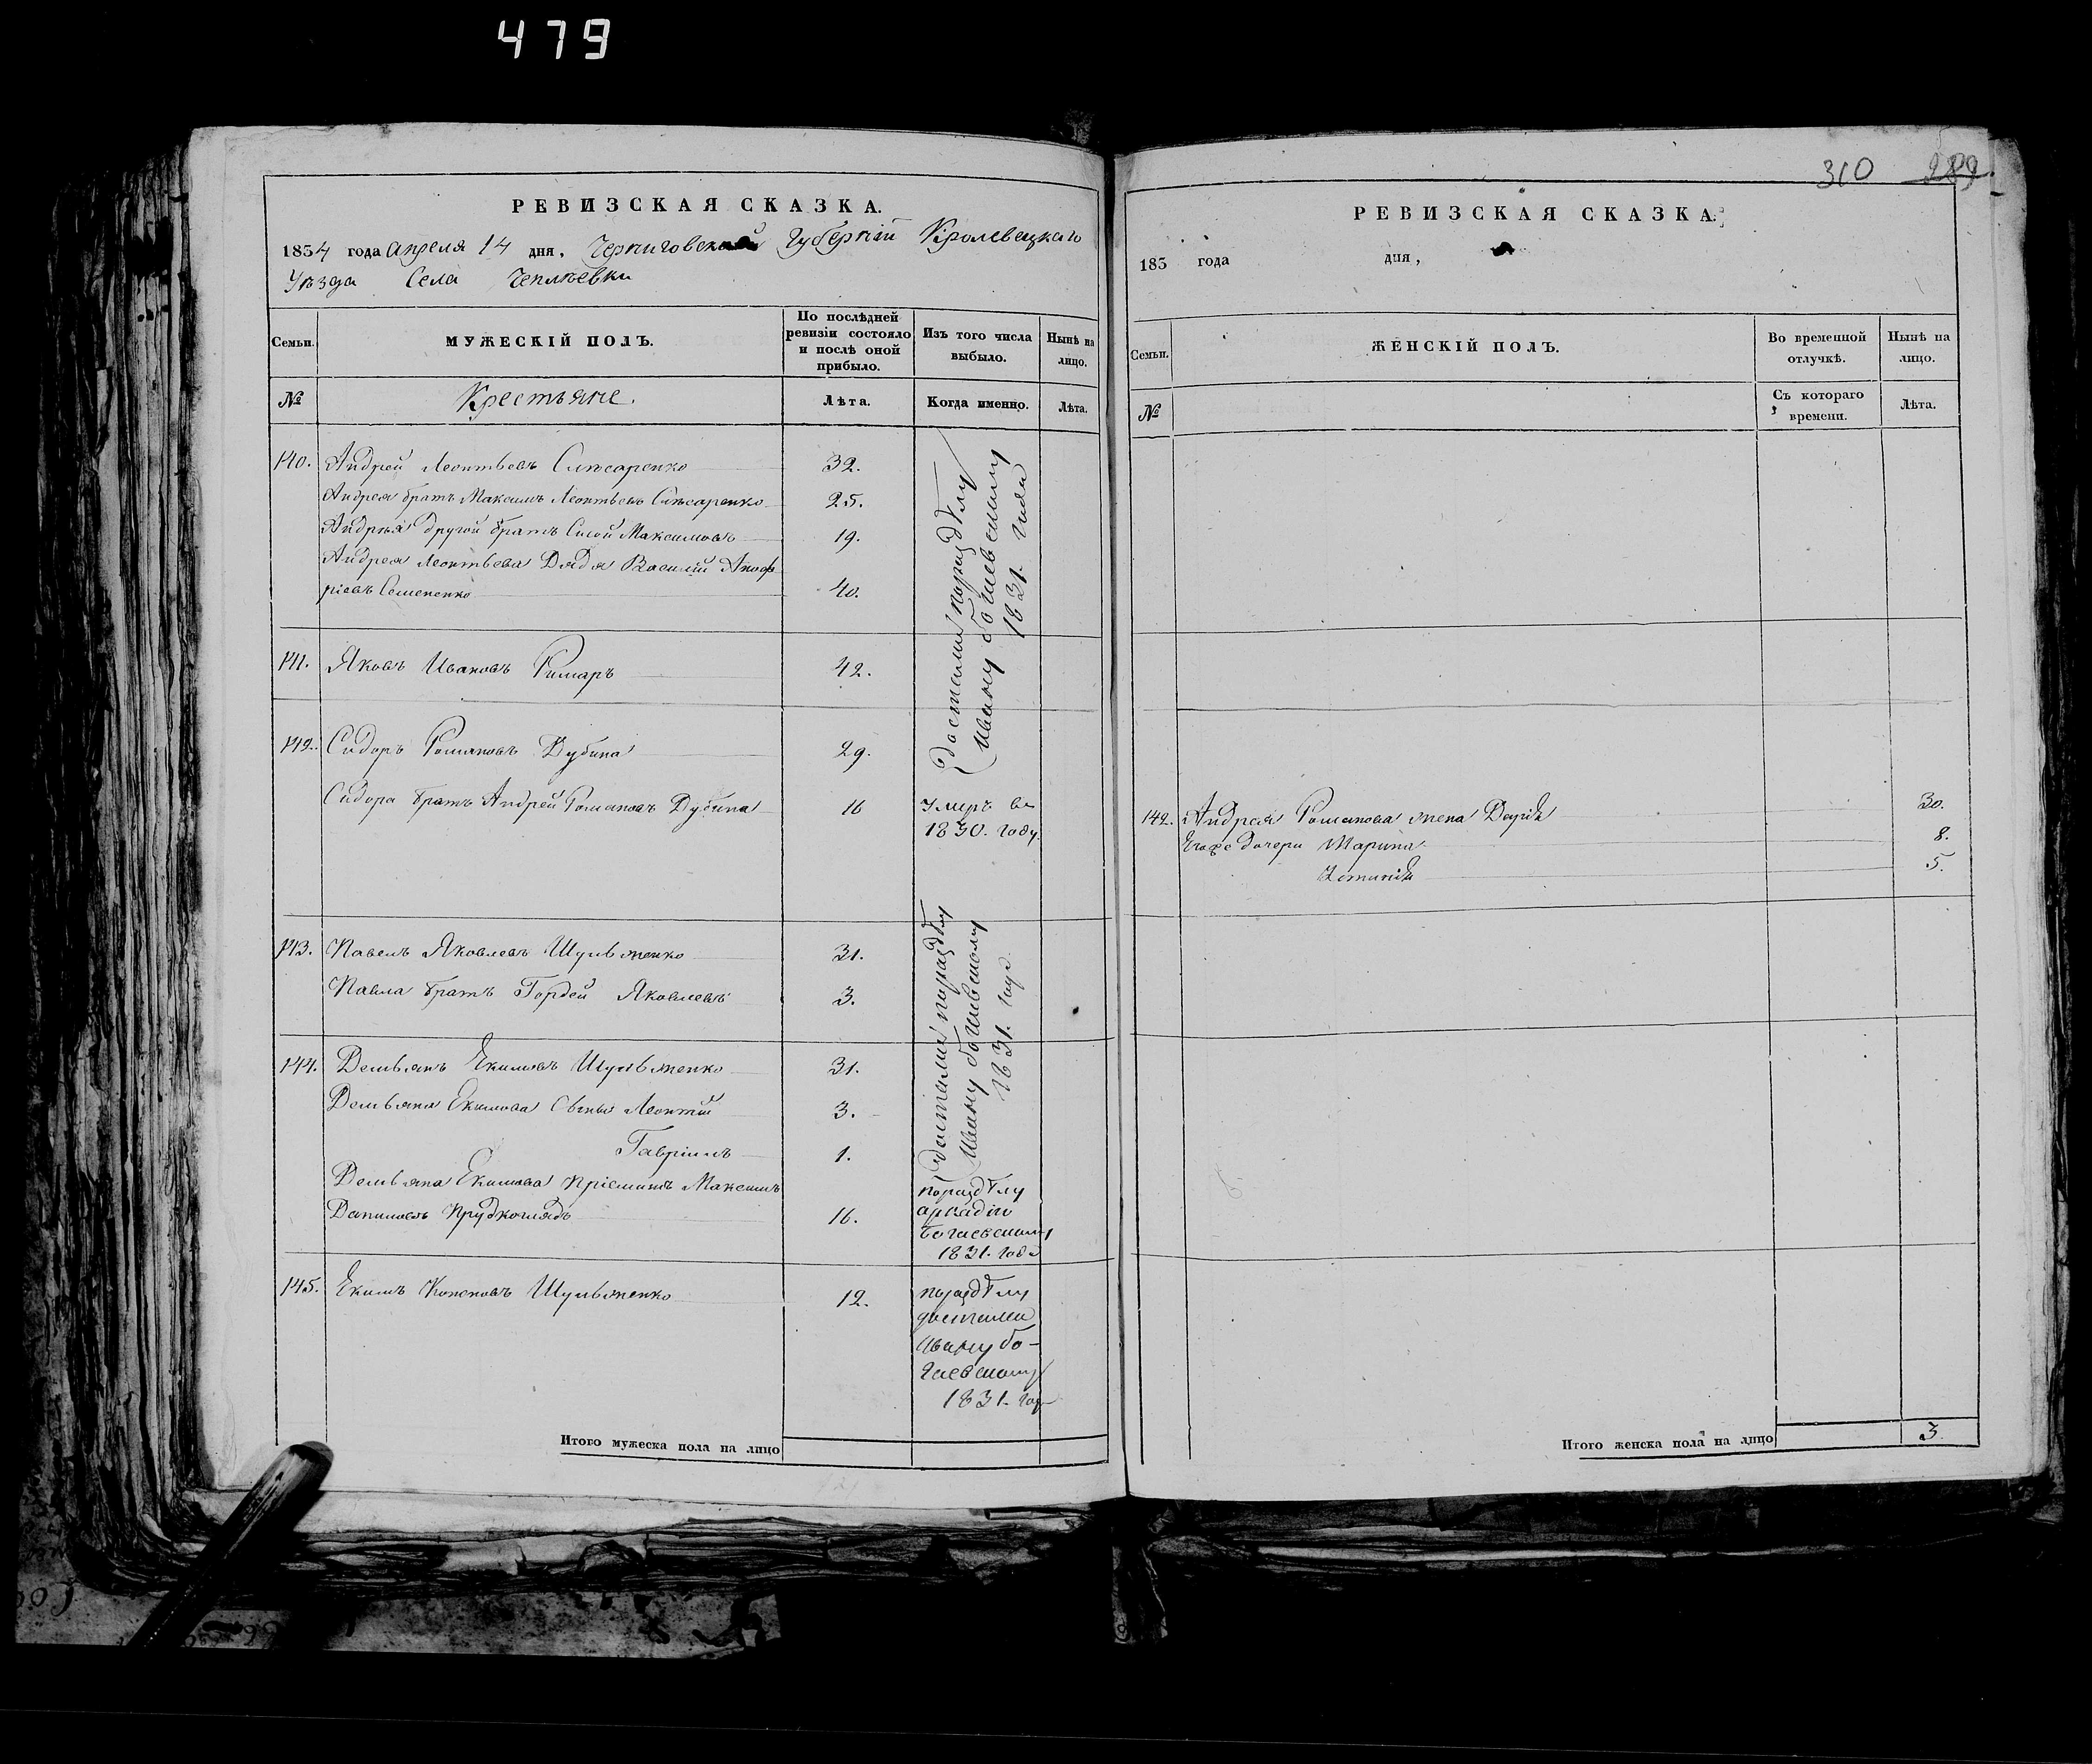 479
РЕВИЗСКАЯ СКАЗКА.
1834 года Апреля 14 дня, Черниговской Губерніи Кролевецкаго
Уѣзда Села Чепліевки
Семьи.
МУЖЕСКІЙ ПОЛЪ.
По послѣдней ревизіи состояло и послѣ оной прибыло.
Изъ того числа выбыло.
Нынѣ на лицо.
№
Крестьяне.
Лѣта.
Когда именно.
Лѣта.
140. Андрей Леонтьевъ Слѣсаренко 32.
Андрея братъ Максимъ Леонтьевъ Слѣсаренко 25.
Андрея другой братъ Максимовъ 19.
Андрея Леонтьева Дядя Василій Аноф
ріевъ Семененко 40.
141. Яковъ Ивановъ Римаръ 42.
142. Сидоръ Романовъ Дубина 29.
достались по раздѣлу
Ивану Богаевскому
1831. года
Сидора братъ Андрей Романовъ Дубина 16
умеръ въ
1830. году.
143. Павелъ Яковлевъ Шульженко 31.
Павла братъ Гордей Яковлевъ 3.
144. Демьянъ Екимовъ Шульженко 31.
Демьяна Екимова Сыны Леонтій 3.
Гавріилъ 1.
достались по раздѣлу
Ивану Богаевскому
1831. года
Демьяна Екимова Пріемышъ Максимъ
Даниловъ Прудкоглядъ 16.
по раздѣлу
Аркадію
Богаевскому
1831. года
145. Екимъ Кононовъ Шульженко 12.
по раздѣлу
достался
Ивану Бо-
гаевскому
1831. года
Итого мужеска пола на лицо
310 289.
РЕВИЗСКАЯ СКАЗКА.
183 года дня,
Семьи.
ЖЕНСКІЙ ПОЛЪ.
Во временной отлучкѣ.
Нынѣ на лицо.
№
Съ котораго времени.
Лѣта.
142. Андрея Романова жена Дарія 30.
Егоже дочери Марина 8.
Устинія 5.
Итого женска пола на лицо 3